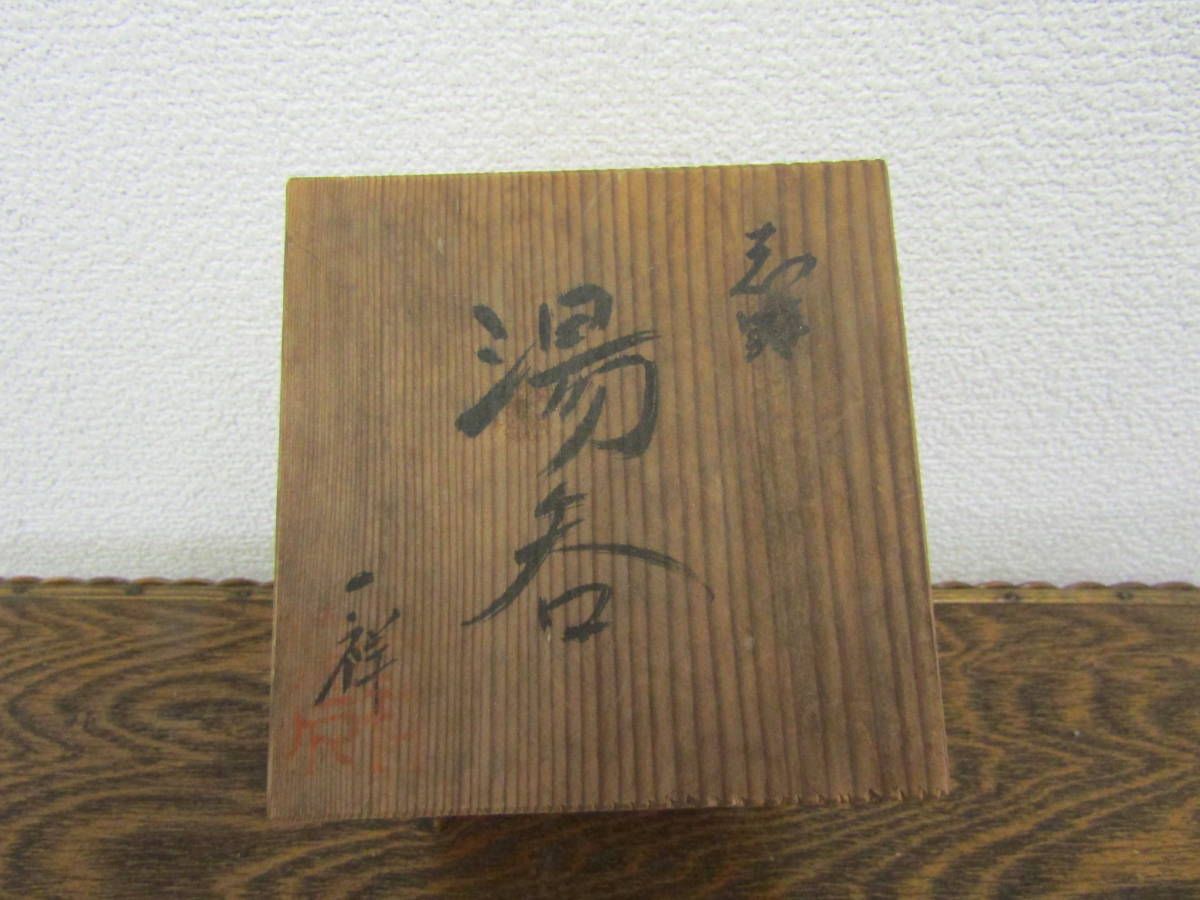 志野
湯呑
一祥